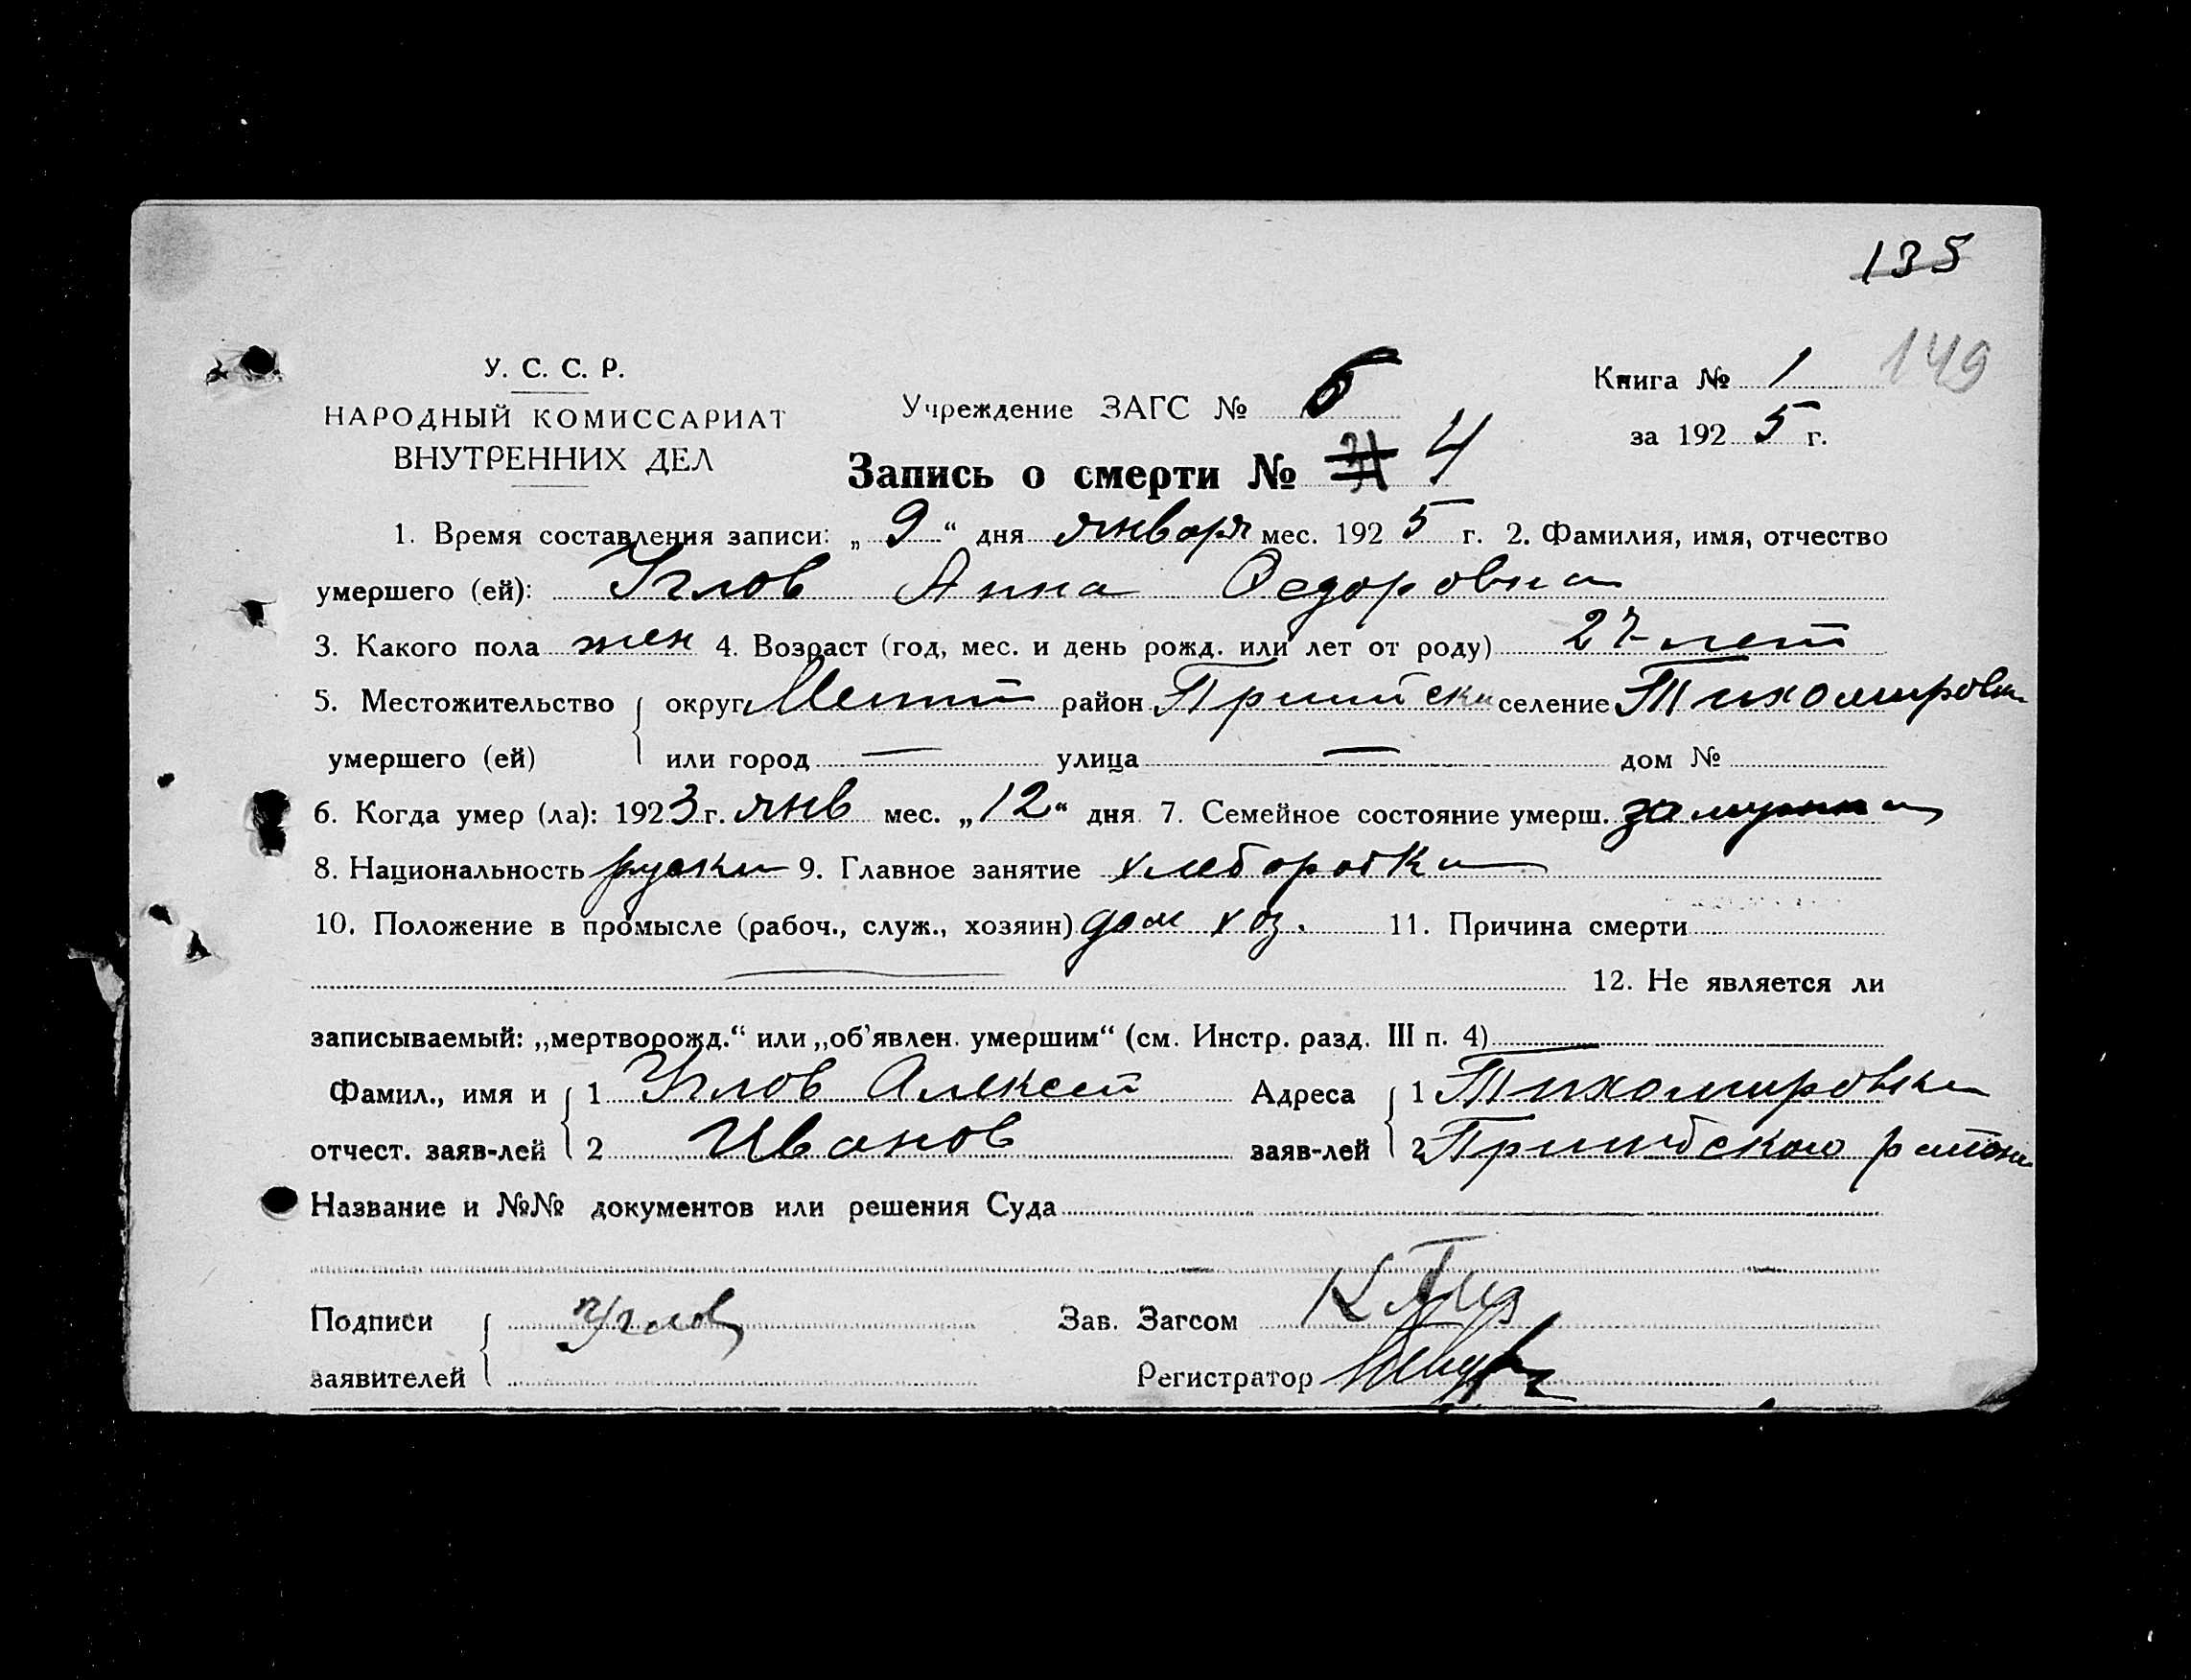 135
149
У. С. С. Р.
НАРОДНЫЙ КОМИССАРИАТ
ВНУТРЕННИХ ДЕЛ
Учреждение ЗАГС № 6
Книга № 1
за 1925 г.
Запись о смерти № 4
1. Время составления записи: „9“ дня января мес. 1925 г. 2. Фамилия, имя, отчество
умершего (ей): Углов Анна Федоровна
3. Какого пола жен 4. Возраст (год, мес. и день рожд. или лет от роду) 27 лет
5. Местожительство округ район селение Тихомировка
умершего (ей) или город — улица — дом №
6. Когда умер (ла): 1923 г. янв мес. „12“ дня 7. Семейное состояние умерш. замужня
8. Национальность руска 9. Главное занятие хлеборобка
10. Положение в промысле (рабоч., служ., хозяин) дом хоз. 11. Причина смерти
12. Не является ли
записываемый: „мертворожд.“ или „об'явлен. умершим“ (см. Инстр. разд. III п. 4)
Фамил., имя и 1 Углов Алексей Адреса 1 Тихомировка
отчест. заяв-лей 2 Иванов заяв-лей 2 Пришибского района
Название и №№ документов или решения Суда
Подписи Углов Зав. Загсом
заявителей Регистратор